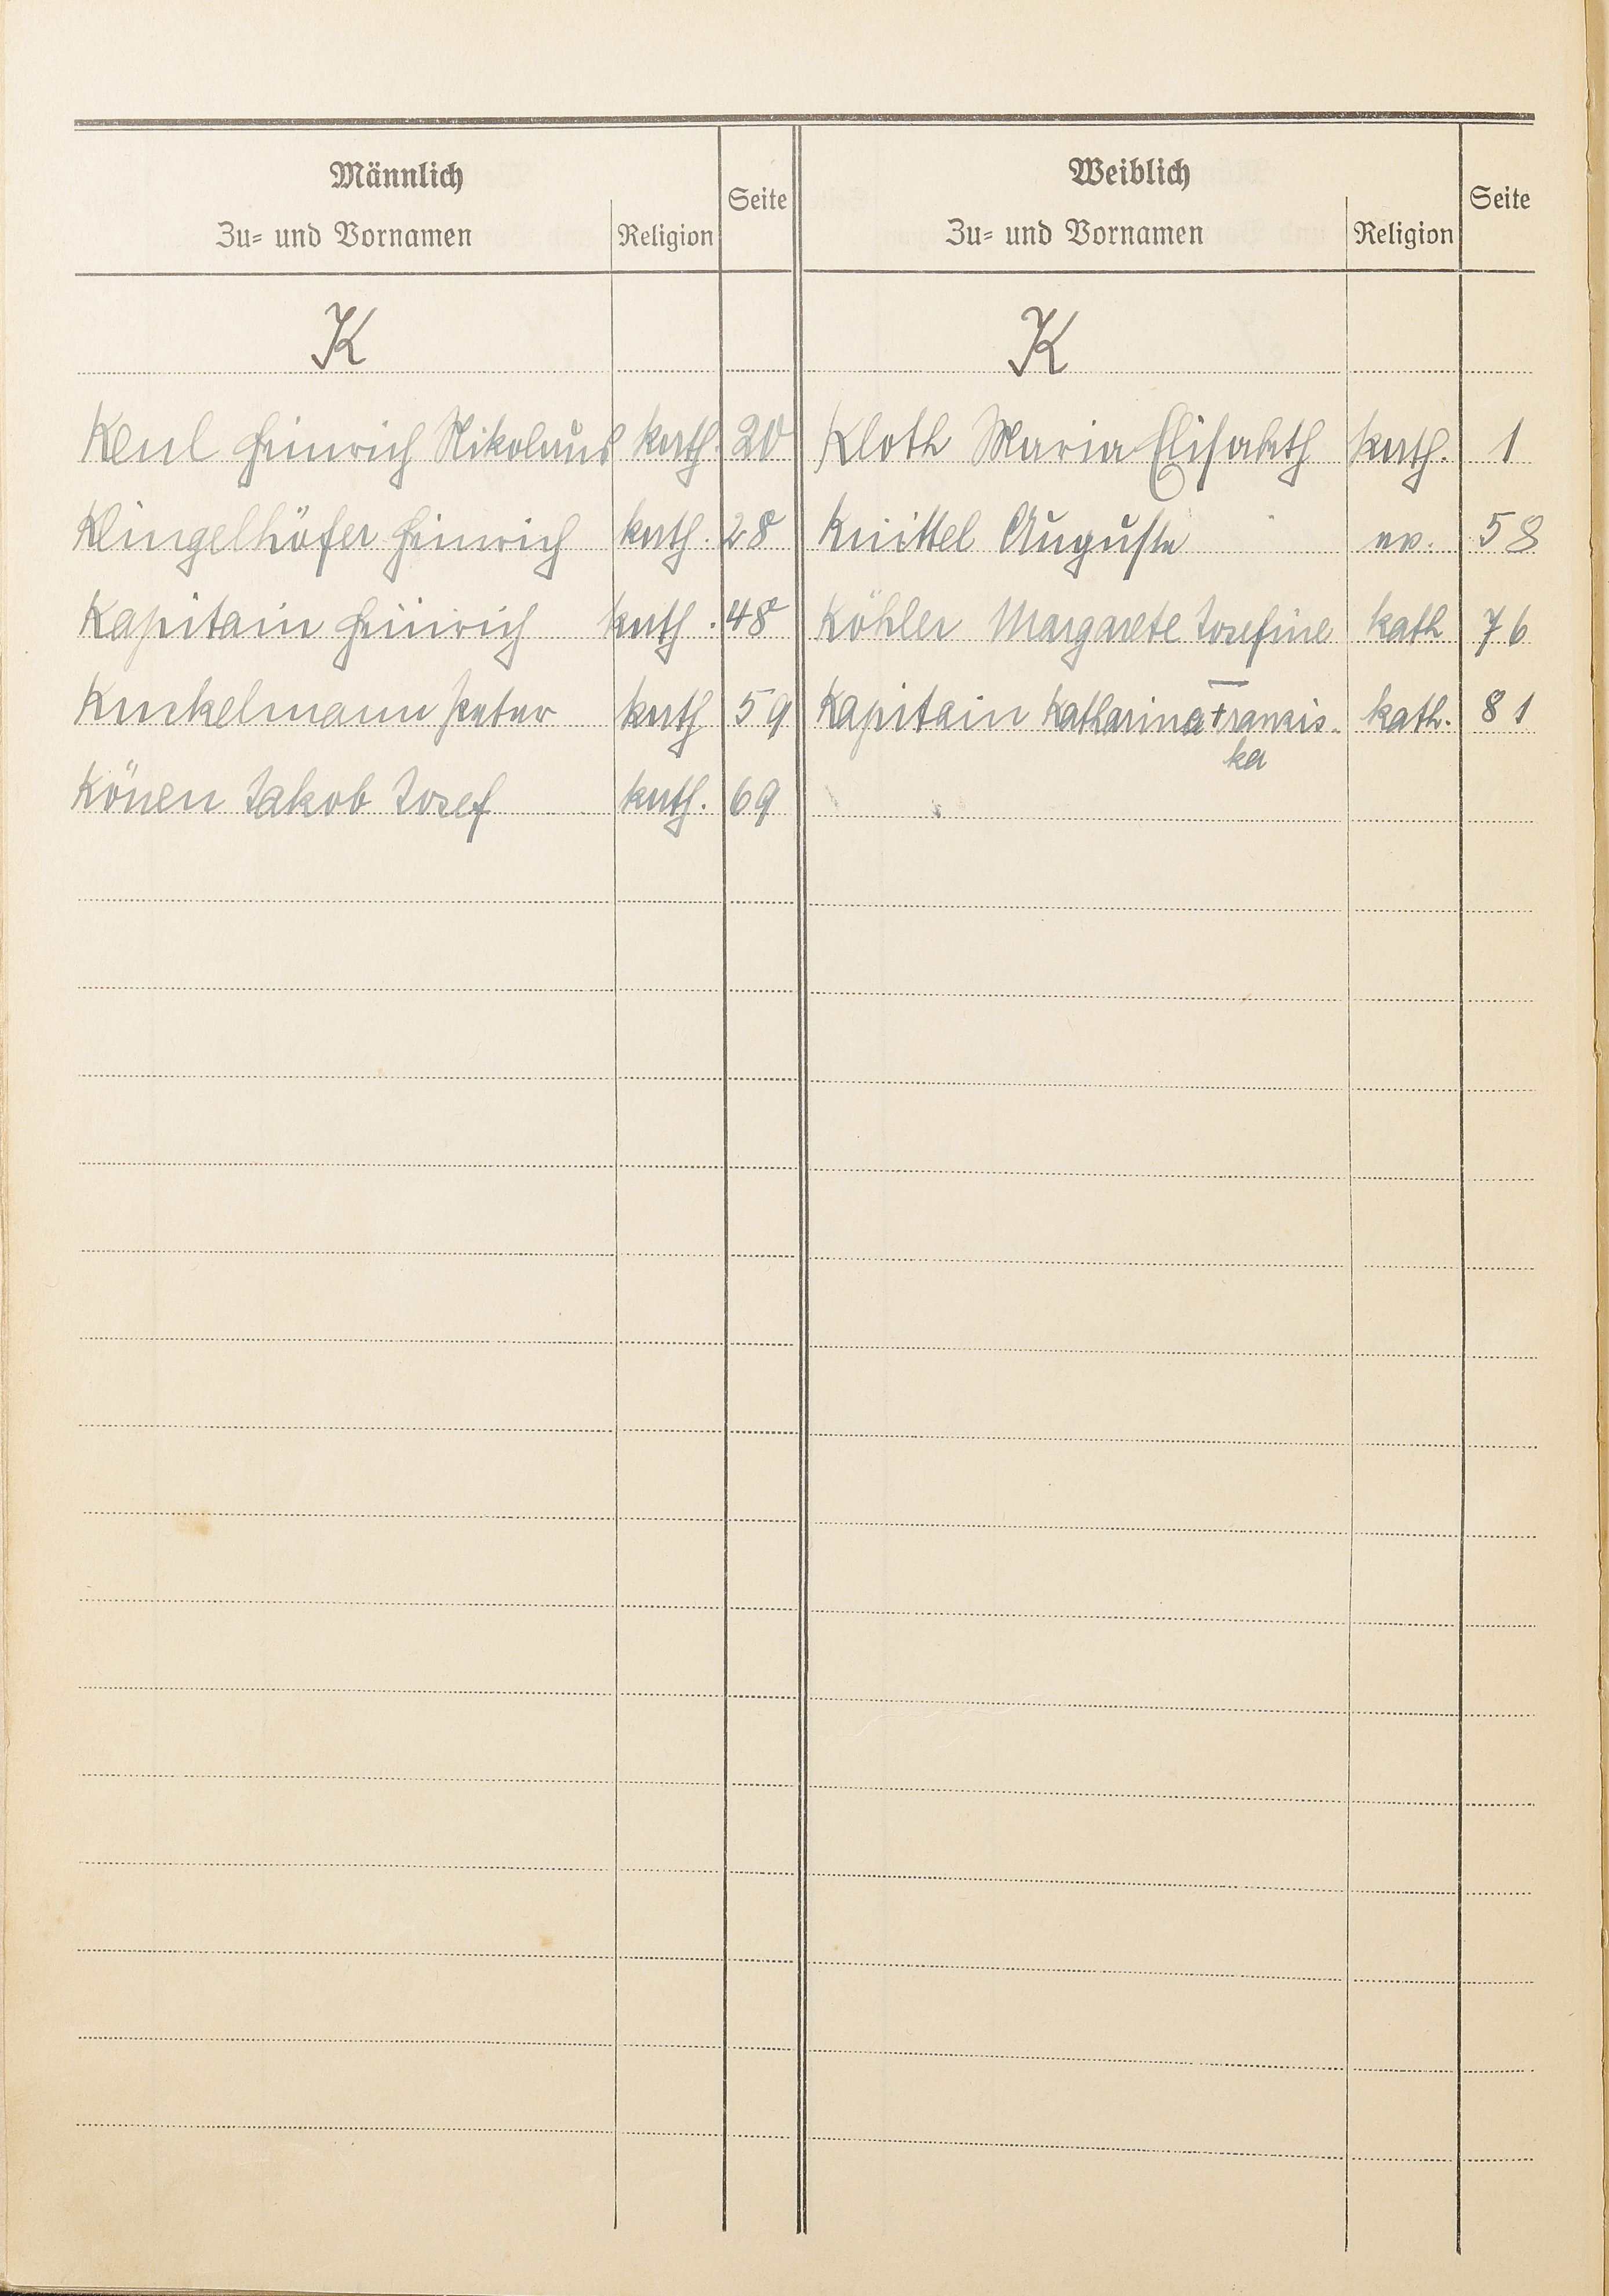 Männlich
Zu= und Vornamen Religion Seite
Weiblich
Zu= und Vornamen Religion Seite
K K
Keul Heinrich Nikolaus kath. 20 Kloth Maria Elisabeth kath. 1
Klingelhöfer Heinrich kath. 28 Knittel Auguste ev. 58
Kapitain Heinrich kath. 48 Köhler Margarete Josefine kath 76
Kunkelmann Peter kath 59 Kapitain Katharina Franzis-
ka kath. 81
Könen Jakob Josef kath. 69